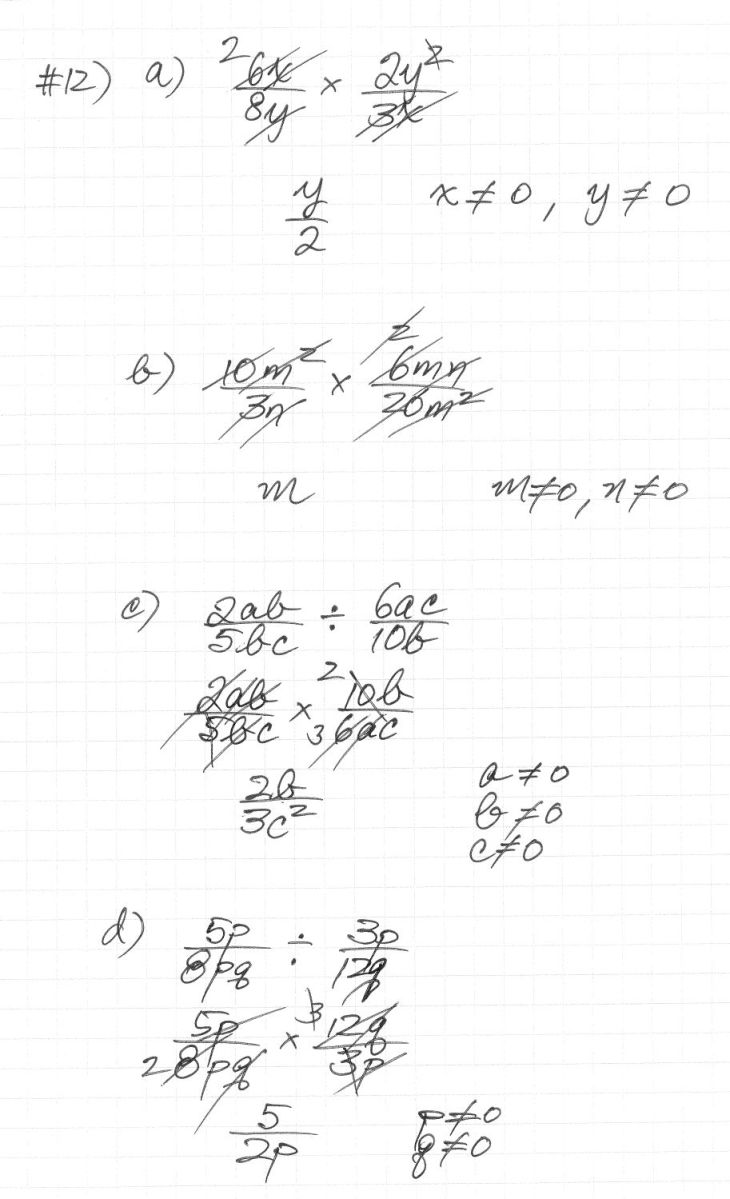 #12) a) ²6x/8y × 2y²/3x
y/2 x ≠ 0, y ≠ 0
b) 10m²/3n × ²6mn/20m²
m m≠0, n≠0
c) 2ab/5bc ÷ 6ac/10b
2ab/5bc × ²10b/₃6ac
2b/3c² a ≠ 0
b ≠ 0
c≠0
d) 5p/8pq ÷ 3p/12q
5p/₂8pq × ³12q/3p
5/2p p≠0
q≠0